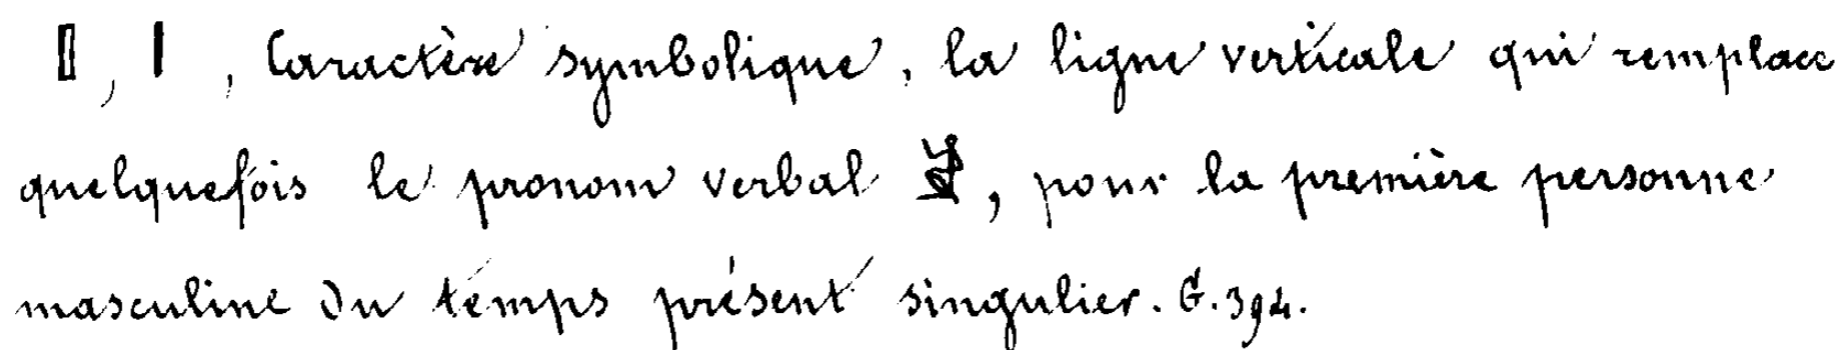 𓏤, 𓏤, Caractère symbolique, la ligne verticale qui remplace
quelquefois le pronom verbal , pour la première personne
masculine du temps présent singulier. G. 394.